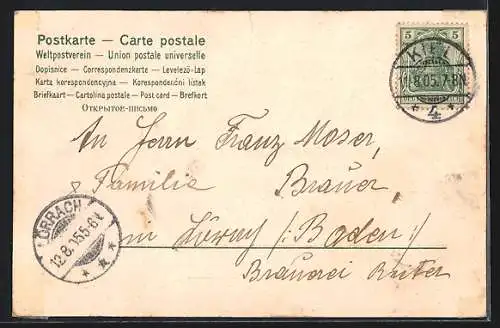 Postkarte — Carte postale
Weltpostverein — Union postale universelle
Dopisnice — Correspondenzkarte — Levelező-Lap
Karta korespondencyjna — Korespondenční lístek
Briefkaart — Cartolina postale — Post card — Brefkort
Открытое письмо
5 5
KIEL
8.05.7-8N
* 4 *
An Herrn Franz Moser,
& Familie Brauer
LÖRRACH
12.8.05 5-6N
* * *
in Lörrach /: Baden :/
Brauerei Reiter